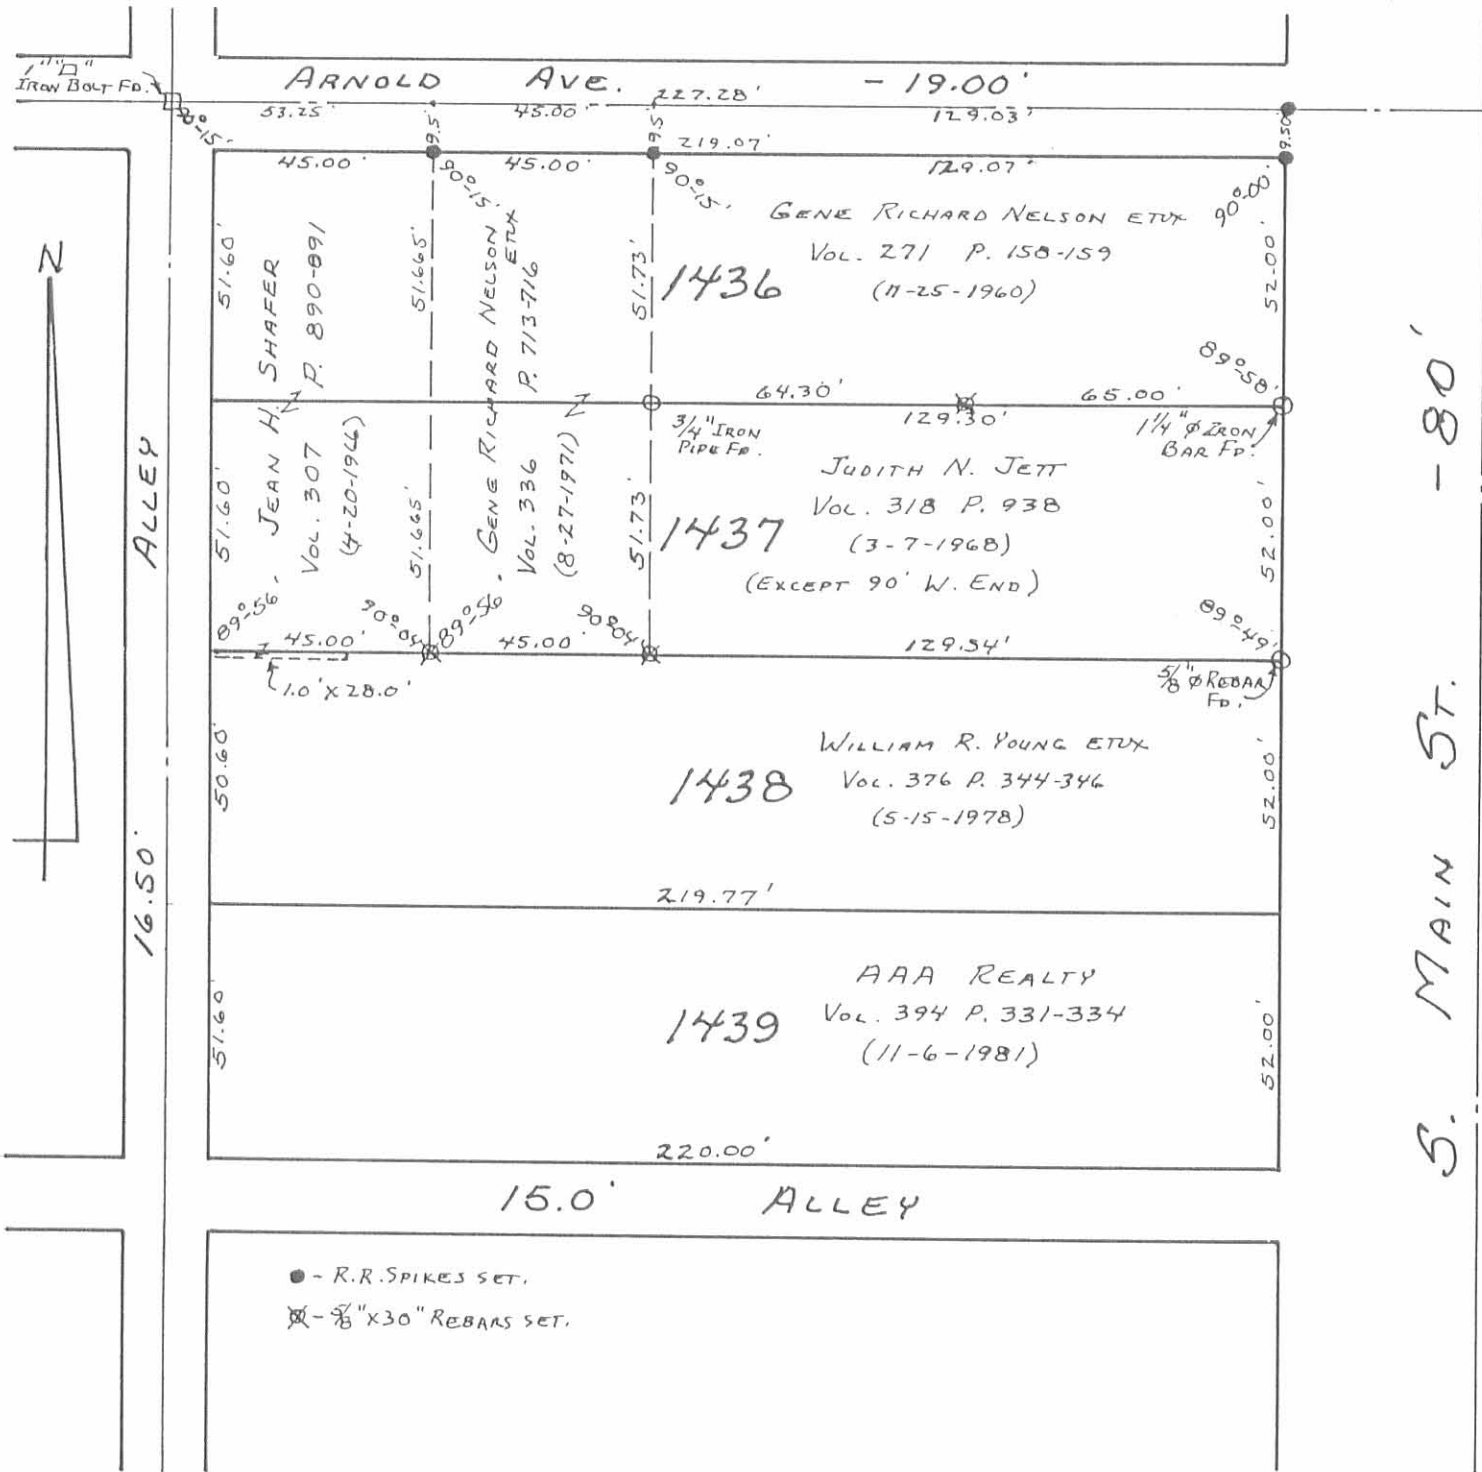 1" "□"
IRON BOLT FD.
ARNOLD AVE. - 19.00'
53.25'
45.00'
227.28'
129.03'
90°-15'
9.5'
9.5
9.50
219.07'
45.00'
45.00'
129.07'
90°-15'
90°-15'
90°-00'
N
51.60'
JEAN H. SHAFER
VOL. 307 P. 890-891
(4-20-1966)
51.665'
GENE RICHARD NELSON ETUX
VOL. 336 P. 713-716
(8-27-1971)
51.73'
1436
GENE RICHARD NELSON ETUX
VOL. 271 P. 158-159
(11-25-1960)
52.00'
89°-58'
Z
Z
64.30'
65.00'
129.30'
3/4" IRON
PIPE FD.
1 1/4" ø IRON
BAR FD.
51.60'
51.665'
51.73'
1437
JUDITH N. JETT
VOL. 318 P. 938
(3-7-1968)
(EXCEPT 90' W. END)
52.00'
89°-56'
90°-04'
89°-56'
90°-04'
89°-49'
45.00'
45.00'
129.54'
Z
1.0' X 28.0'
5/8" ø REBAR
FD.
50.60'
1438
WILLIAM R. YOUNG ETUX
VOL. 376 P. 344-346
(5-15-1978)
52.00'
219.77'
51.60'
1439
AAA REALTY
VOL. 394 P. 331-334
(11-6-1981)
52.00'
220.00'
16.50' ALLEY
S. MAIN ST. - 80'
15.0' ALLEY
- R.R. SPIKES SET.
- 5/8" X 30" REBARS SET.